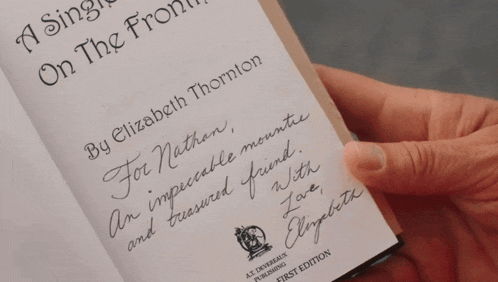 A Single
On The Front
By Elizabeth Thornton
For Nathan,
An impeccable mountie
and treasured friend.
With
Love,
Elizabeth
A.T. DEVEREAUX
PUBLISHING
FIRST EDITION